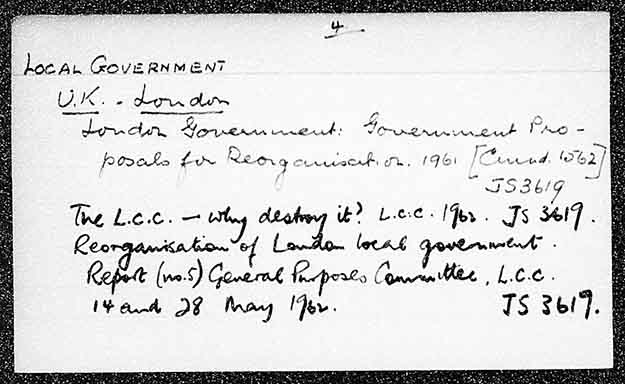 4
LOCAL GOVERNMENT
U.K. - London
London Government: Government Pro-
posals for Reorganisation. 1961 [Cmnd. 1562]
JS3619
The L.C.C. — why destroy it? L.C.C. 1962. JS 3619.
Reorganisation of London local government.
Report (no.5) General Purposes Committee, L.C.C.
14 and 28 May 1962. JS 3619.